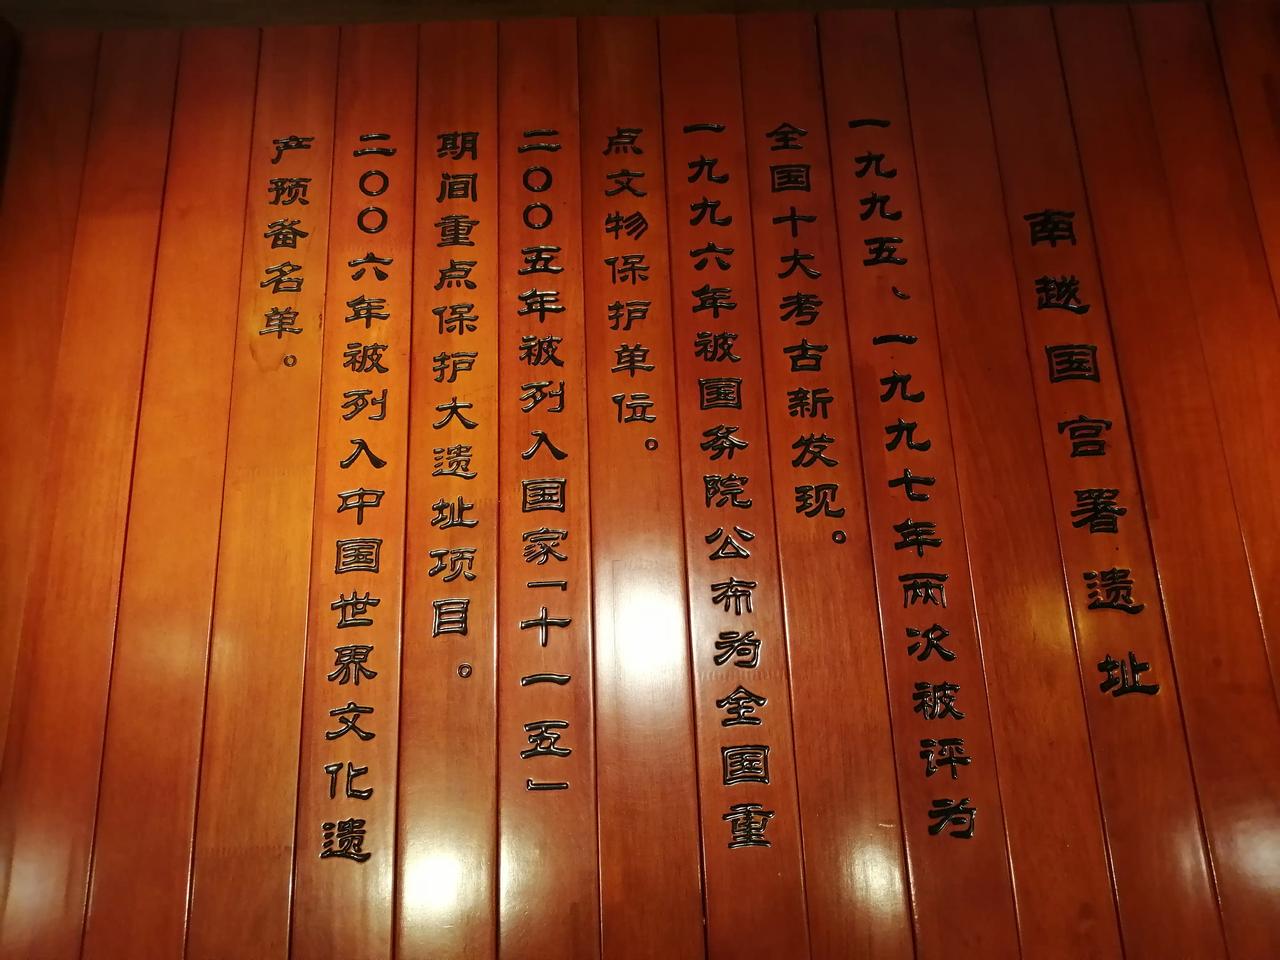 南越国宫署遗址
一九九五、一九九七年两次被评为
全国十大考古新发现。
一九九六年被国务院公布为全国重
点文物保护单位。
二〇〇五年被列入国家「十一五」
期间重点保护大遗址项目。
二〇〇六年被列入中国世界文化遗
产预备名单。